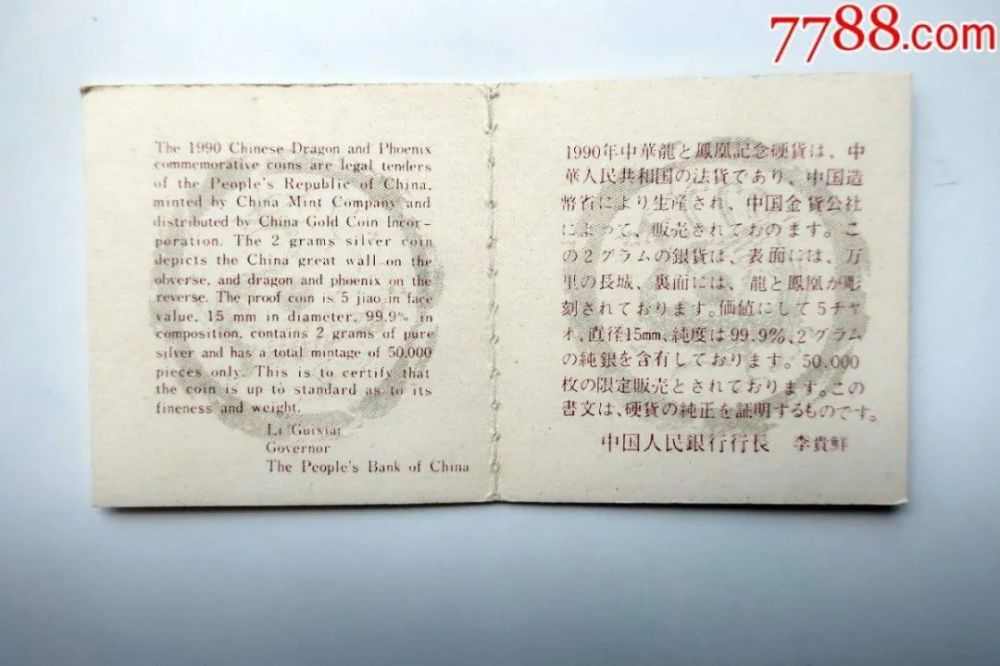 7788.com
The 1990 Chinese Dragon and Phoenix
commemorative coins are legal tenders
of the People's Republic of China,
minted by China Mint Company and
distributed by China Gold Coin Incor-
poration. The 2 grams silver coin
depicts the China great wall on the
obverse, and dragon and phoenix on the
reverse. The proof coin is 5 jiao in face
value, 15 mm in diameter, 99.9% in
composition, contains 2 grams of pure
silver and has a total mintage of 50.000
pieces only. This is to certify that
the coin is up to standard as to its
fineness and weight.
Li Guixian
Governor
The People's Bank of China
1990年中華龍と鳳凰記念硬貨は、中
華人民共和国の法貨であり、中国造
幣省により生産され、中国金貨公社
によって、販売されておのます。こ
の2グラムの銀貨は、表面には、万
里の長城、裏面には、龍と鳳凰が彫
刻されております。価値にして5チヤ
オ、直径15mm、純度は99.9%、2グラム
の純銀を含有しております。50.000
枚の限定販売とされております。この
書文は、硬貨の純正を証明するものです。
中国人民銀行行長 李貴鮮